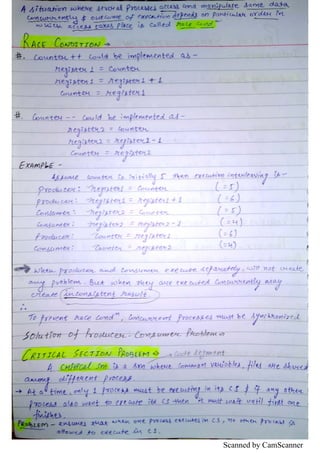 A situation where several processes access and manipulate same data
concurrently & outcome of execution depends on particular order in
which access takes place is called "Race Condⁿ"
RACE CONDITION →
#. Counter ++ could be implemented as -
register1 = Counter
register1 = register1 + 1
Counter = register1
#. Counter -- could be implemented as -
register2 = Counter
register2 = register2 - 1
Counter = register2
EXAMPLE -
Assume counter is initially 5 then execution interleaving is -
Producer: register1 = Counter (=5)
producer: register1 = register1 + 1 (=6)
Consumer: register2 = Counter (=5)
Consumer: register2 = register2 - 1 (=4)
Producer: Counter = register1 (=6)
Consumer: Counter = register2 (=4)
When producer and consumer execute separately, will not create
any problem. But when they are executed concurrently may
create inconsistent result
∴
To prevent Race condⁿ, concurrent processes must be synchronized
Solution of Producer-Consumer Problem →
CRITICAL SECTION PROBLEM → → code segment
A Critical Secⁿ is a secⁿ where common variables, files are shared
among different process.
→ At a time, only 1 process must be executing in its CS & if any other
process also want to execute its CS then it must wait until first one
finishes.
PROBLEM - ensures that when one process executes in CS, no other process is
allowed to execute in CS.
Scanned by CamScanner